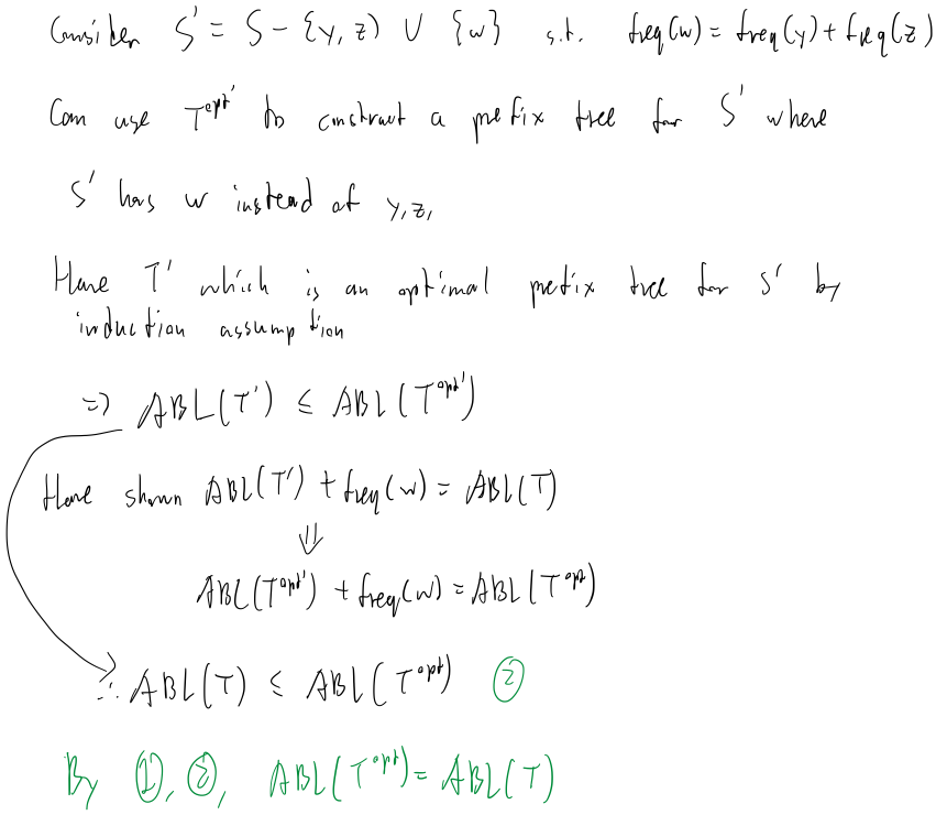 Consider S' = S - {y, z) ∪ {w} s.t. freq(w) = freq(y) + freq(z)
Can use T^opt' to construct a prefix tree for S' where
S' has w instead of y, z,
Have T' which is an optimal prefix tree for S' by
induction assumption
=> ABL(T') ≤ ABL(T^opt')
Have shown ABL(T') + freq(w) = ABL(T)
⇓
ABL(T^opt') + freq(w) = ABL(T^opt)
∴ ABL(T) ≤ ABL(T^opt) ②
By ①, ②, ABL(T^opt) = ABL(T)